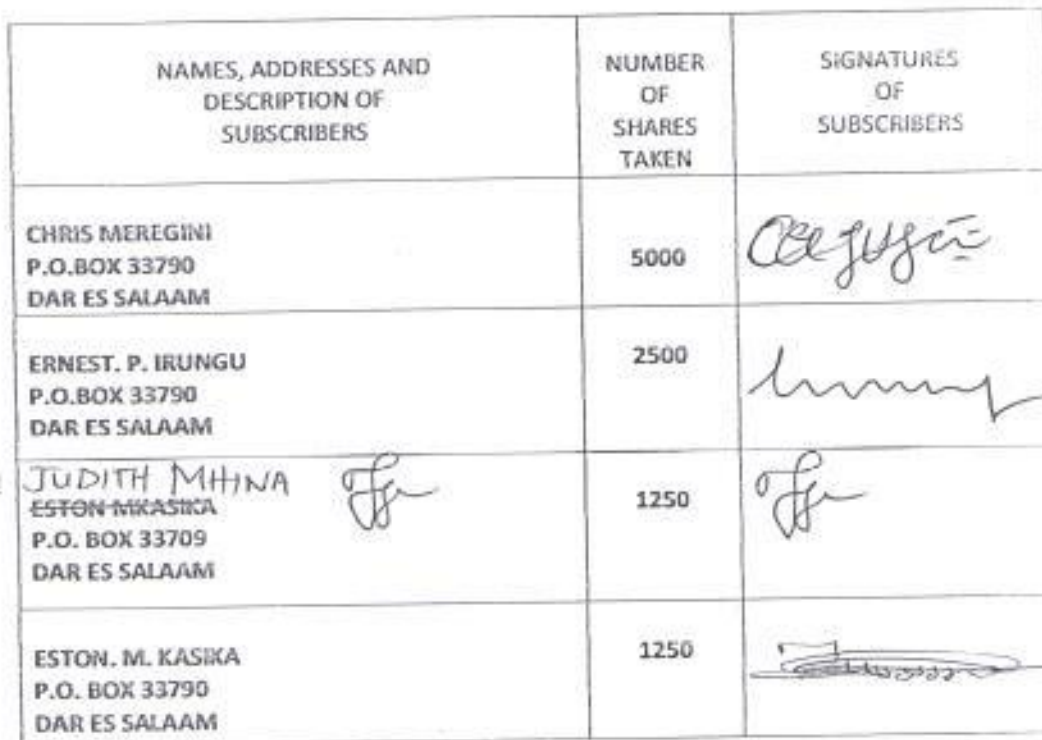 NAMES, ADDRESSES AND
DESCRIPTION OF
SUBSCRIBERS
NUMBER
OF
SHARES
TAKEN
SIGNATURES
OF
SUBSCRIBERS
CHRIS MEREGINI
P.O.BOX 33790
DAR ES SALAAM
5000
ERNEST. P. IRUNGU
P.O.BOX 33790
DAR ES SALAAM
2500
JUDITH MHINA
ESTON MKASIKA
P.O. BOX 33709
DAR ES SALAAM
1250
ESTON. M. KASIKA
P.O. BOX 33790
DAR ES SALAAM
1250